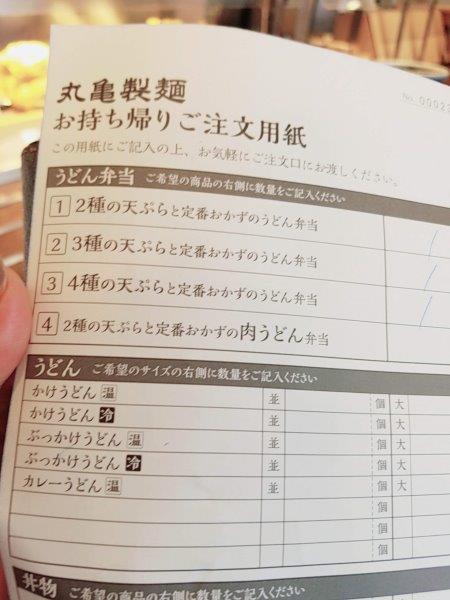 丸亀製麺
No. 00022
お持ち帰りご注文用紙
この用紙にご記入の上、お気軽にご注文口にお渡しください。
うどん弁当 ご希望の商品の右側に数量をご記入ください
1 2種の天ぷらと定番おかずのうどん弁当
2 3種の天ぷらと定番おかずのうどん弁当
3 4種の天ぷらと定番おかずのうどん弁当
4 2種の天ぷらと定番おかずの肉うどん弁当
うどん ご希望のサイズの右側に数量をご記入ください
かけうどん 温 並 個 大
かけうどん 冷 並 個 大
ぶっかけうどん 温 並 個 大
ぶっかけうどん 冷 並 個 大
カレーうどん 温 並 個 大
個
個
個
丼物 ご希望の商品の右側に数量をご記入ください